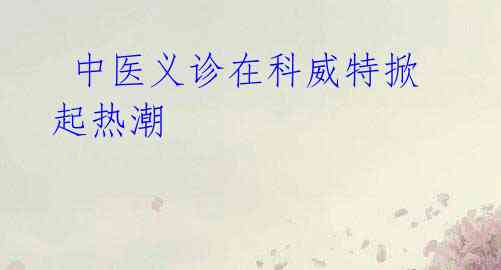 中医义诊在科威特掀
起热潮